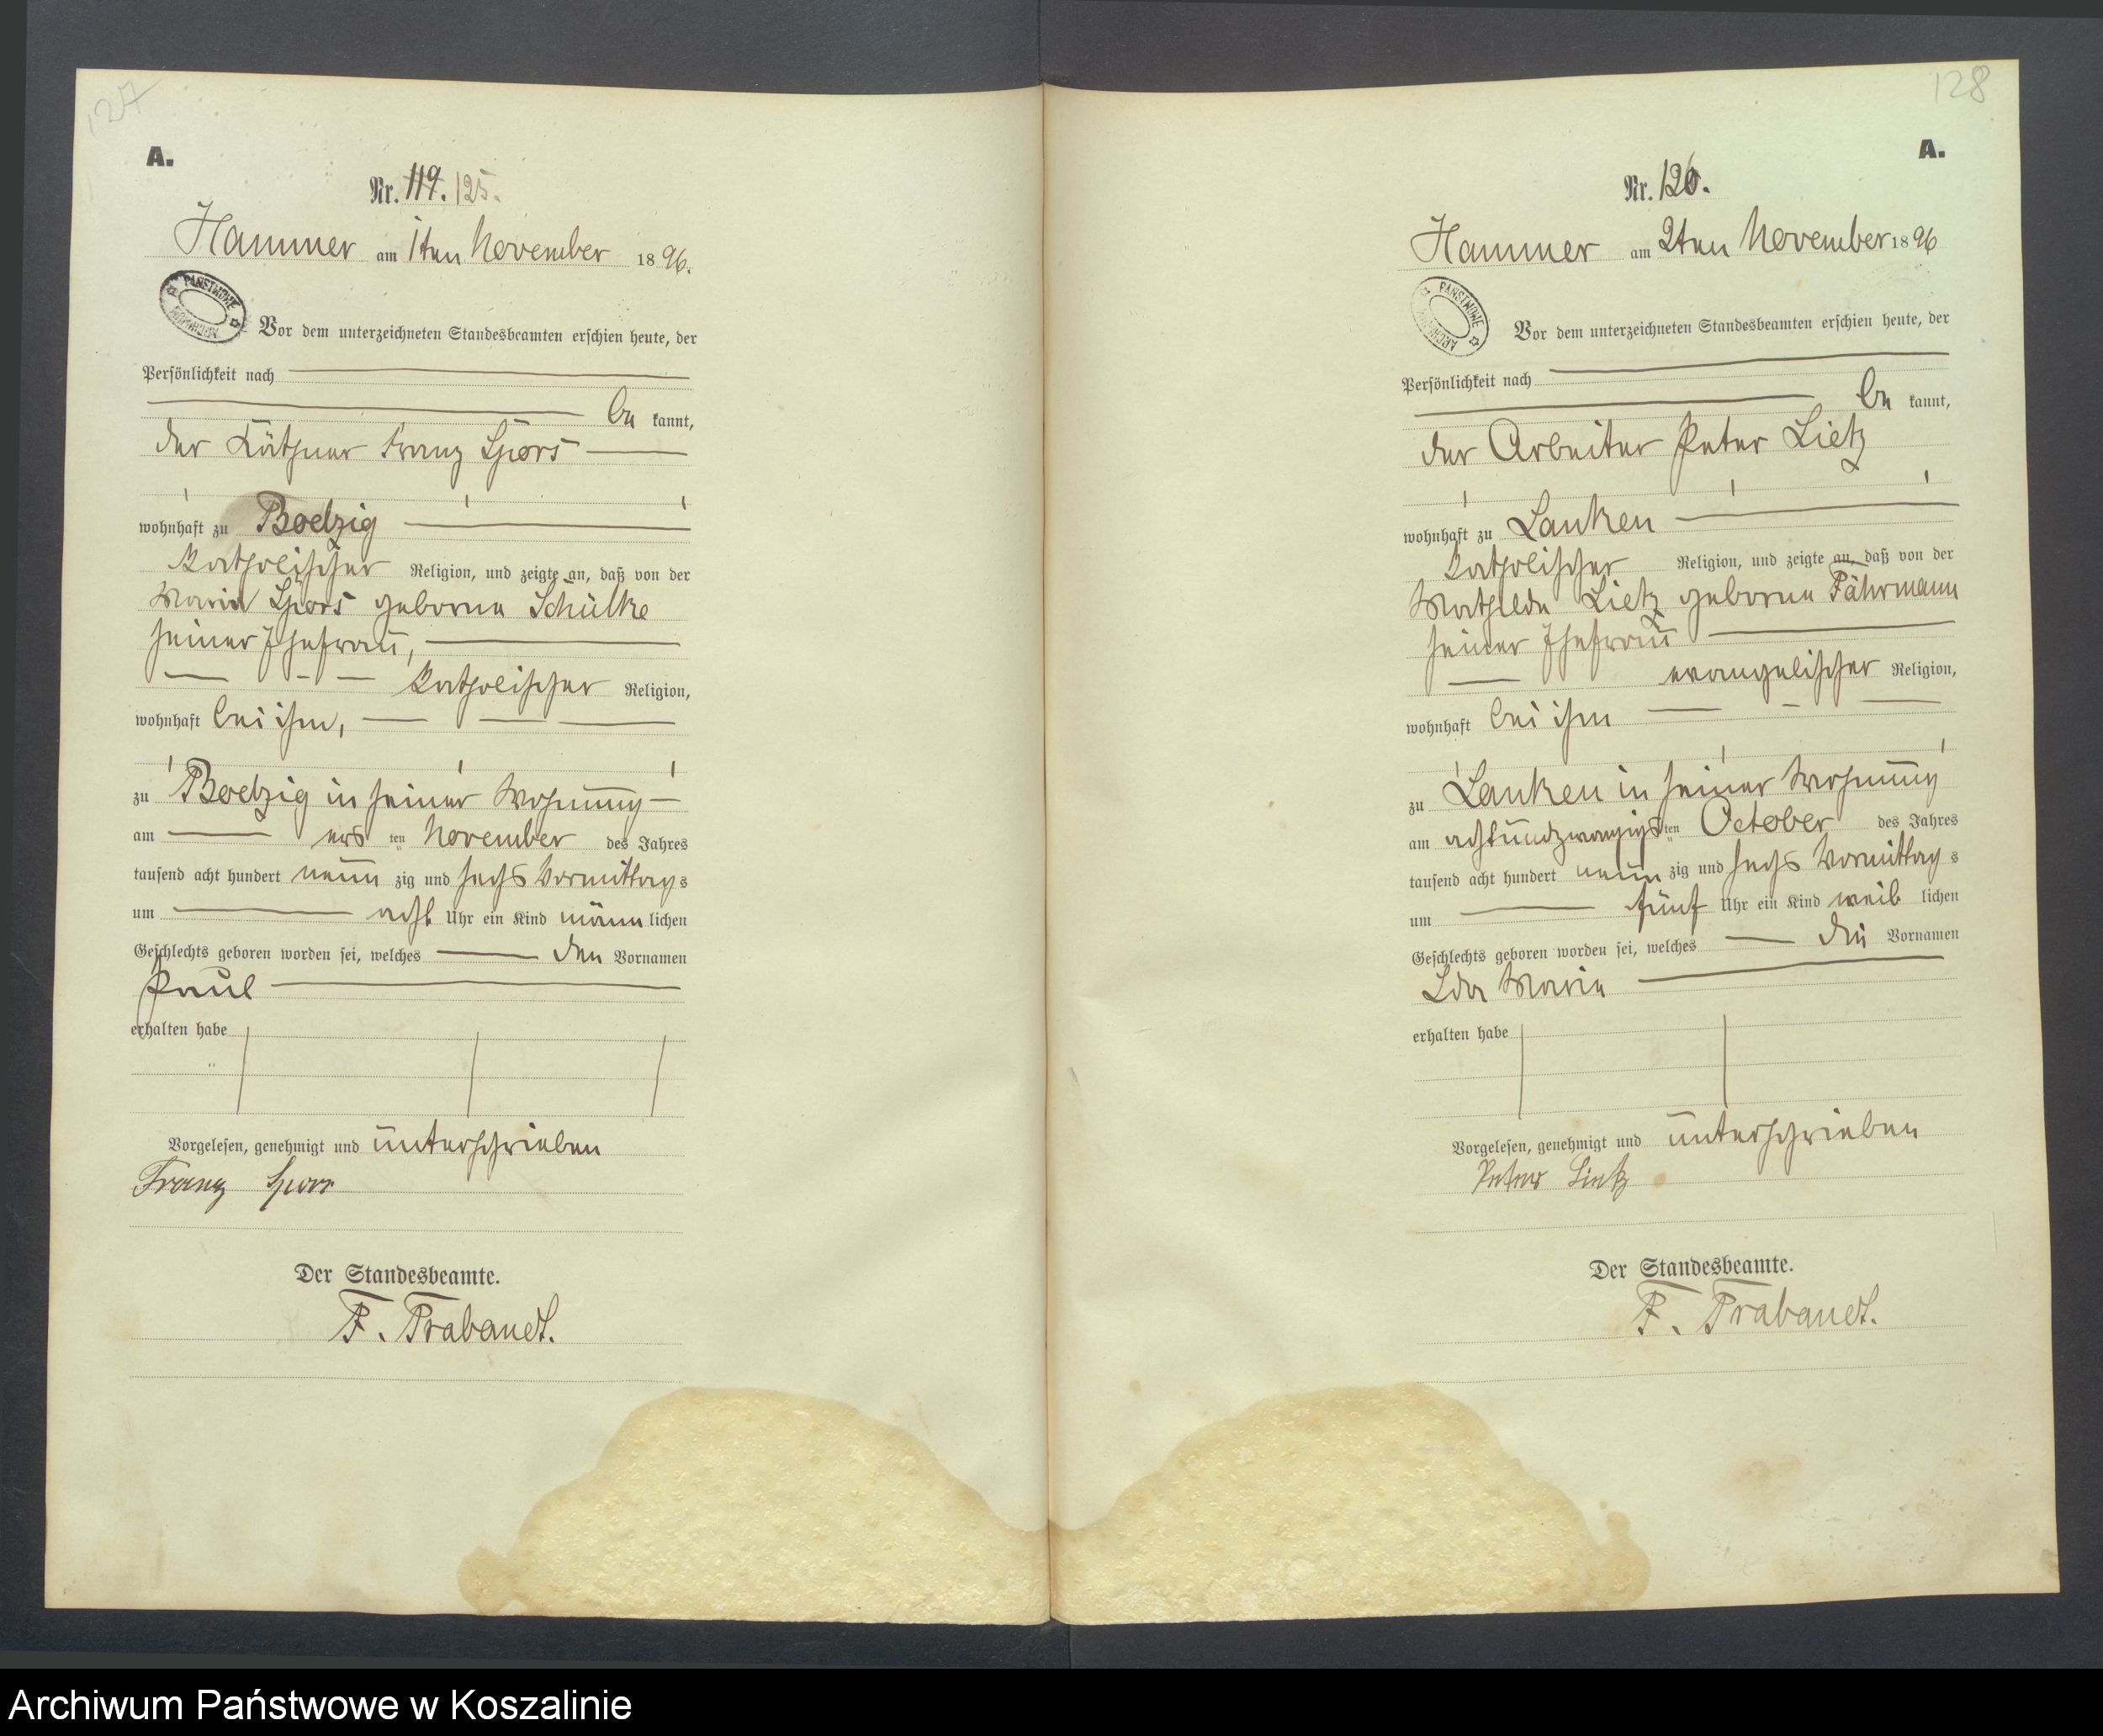 127
A.
Nr. 119. 125.
Hammer am 1ten November 1896.
PAŃSTWOWE ARCHIWUM
Vor dem unterzeichneten Standesbeamten erschien heute, der
Persönlichkeit nach
be kannt,
der Käthner Franz Spors
wohnhaft zu Boelzig
katholischer Religion, und zeigte an, daß von der
Maria Spors geborene Schülke
seiner Ehefrau,
katholischer Religion,
wohnhaft bei ihm,
zu Boelzig in seiner Wohnung
am ers ten November des Jahres
tausend acht hundert neun zig und sechs Vormittags
um acht Uhr ein Kind männlichen
Geschlechts geboren worden sei, welches den Vornamen
Paul
erhalten habe
Vorgelesen, genehmigt und unterschrieben
Franz Spors
Der Standesbeamte.
F. Trabandt.
128
A.
Nr. 126.
Hammer am 2ten November 1896
PAŃSTWOWE ARCHIWUM
Vor dem unterzeichneten Standesbeamten erschien heute, der
Persönlichkeit nach
be kannt,
der Arbeiter Peter Lietz
wohnhaft zu Lanken
katholischer Religion, und zeigte an, daß von der
Mathilde Lietz geborene Fährmann
seiner Ehefrau
evangelischer Religion,
wohnhaft bei ihm
zu Lanken in seiner Wohnung
am achtundzwanzigsten October des Jahres
tausend acht hundert neun zig und sechs Vormittag s
um fünf Uhr ein Kind weib lichen
Geschlechts geboren worden sei, welches die Vornamen
Ida Marie
erhalten habe
Vorgelesen, genehmigt und unterschrieben
Peter Lietz
Der Standesbeamte.
F. Trabandt.
Archiwum Państwowe w Koszalinie